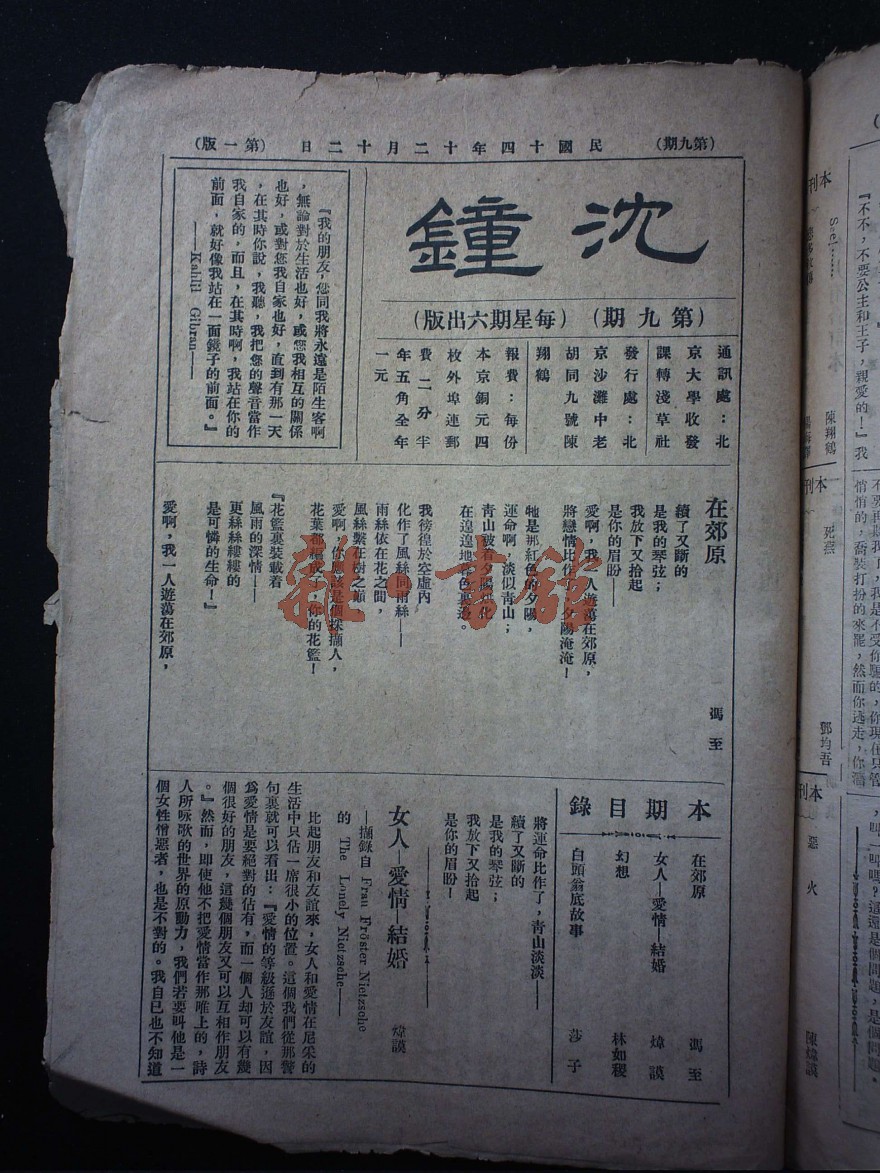 （第九期）
民國十四年十二月十二日
（第一版）
沈鐘
（第九期）（每星期六出版）
通訊處：北
京大學收發
課轉淺草社
發行處：北
京沙灘中老
胡同九號陳
翔鶴
報費：每份
本京銅元四
枚外埠連郵
費二分半
年五角全年
一元
『我的朋友，您同我將永遠是陌生客啊
，無論對於生活也好，或您我相互的關係
也好，或對您我自家也好，直到有那一天
，在其時你說，我聽，我把您的聲音當作
我自家的，而且，在其時啊，我站在你的
前面，就好像我站在一面鏡子的前面。』
——Kahlil Gibran——
在郊原
馮至
續了又斷的
是我的琴弦；
我放下又拾起
是你的眉盼！
愛啊，我一人遊蕩在郊原，
將戀情比作了夕陽淹淹！
牠是那紅色的夕陽，
運命啊，淡似青山；
青山被着夕陽
化
在遑遑地
色裏邊。
我徬徨於空虛內
化作了風絲同雨絲——
雨絲依在花之間，
風絲繫在樹之巔
愛啊，你應該是個採擷人，
花葉都
成了你的花籃！
『花籃裏裝載着
風雨的深情——
更絲絲縷縷的
是可憐的生命！』
愛啊，我一人遊蕩在郊原，
本期目錄
在郊原 馮至
女人—愛情—結婚 煒謨
幻想 林如稷
白頭翁底故事 莎子
將運命比作了，青山淡淡——
續了又斷的
是我的琴弦；
我放下又拾起
是你的眉盼！
女人—愛情—結婚 煒謨
—擷錄自 Frau Fröster Nietzsche
的 The Lonely Nietzsche——
比起朋友和友誼來，女人和愛情在尼采的
生活中只佔一席很小的位置。這個我們從那警
句裏就可以看出：『愛情的等級遜於友誼，因
爲愛情是要絕對的佔有，而一個人却可以有幾
個很好的朋友，這幾個朋友又可以互相作朋友
。』然而，即使他不把愛情當作那唯上的，詩
人所咏歌的世界的原動力，我們若要叫他是一
個女性憎惡者，也是不對的。我自已也不知道
雜·書館
本刊
Seele……
陳翔鶴
本刊
死燕
鄧均吾
本刊
惡火
陳煒謨
『不不，不要公主和王子，親愛的！』我
悄悄的，喬裝打扮的來罷，然而你逃走，你